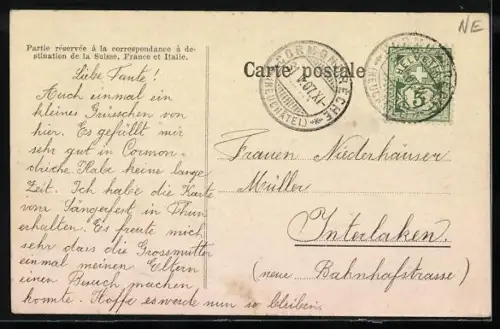 NE
Partie réservée à la correspondance à de-
stination de la Suisse, France et Italie.
Carte postale
CORMONDRÈCHE
(NEUCHÂTEL)
HELVETIA
5
Liebe Tante!
Auch einmal ein
kleines Grüsschen von
hier. Es gefüllt mir
sehr gut in Cormon-
drèche. Habe keine lange
Zeit. Ich habe die Karte
vom Sängerfest in Thun
erhelten. Es freute mich
sehr dass die Grossmutter
einmal meinen Eltern
einen Besuch machen
konnte. Hoffe es werde nun so bleiben.
Frauen Niederhäuser
Müller
Interlaken.
(neue Bahnhofstrasse)